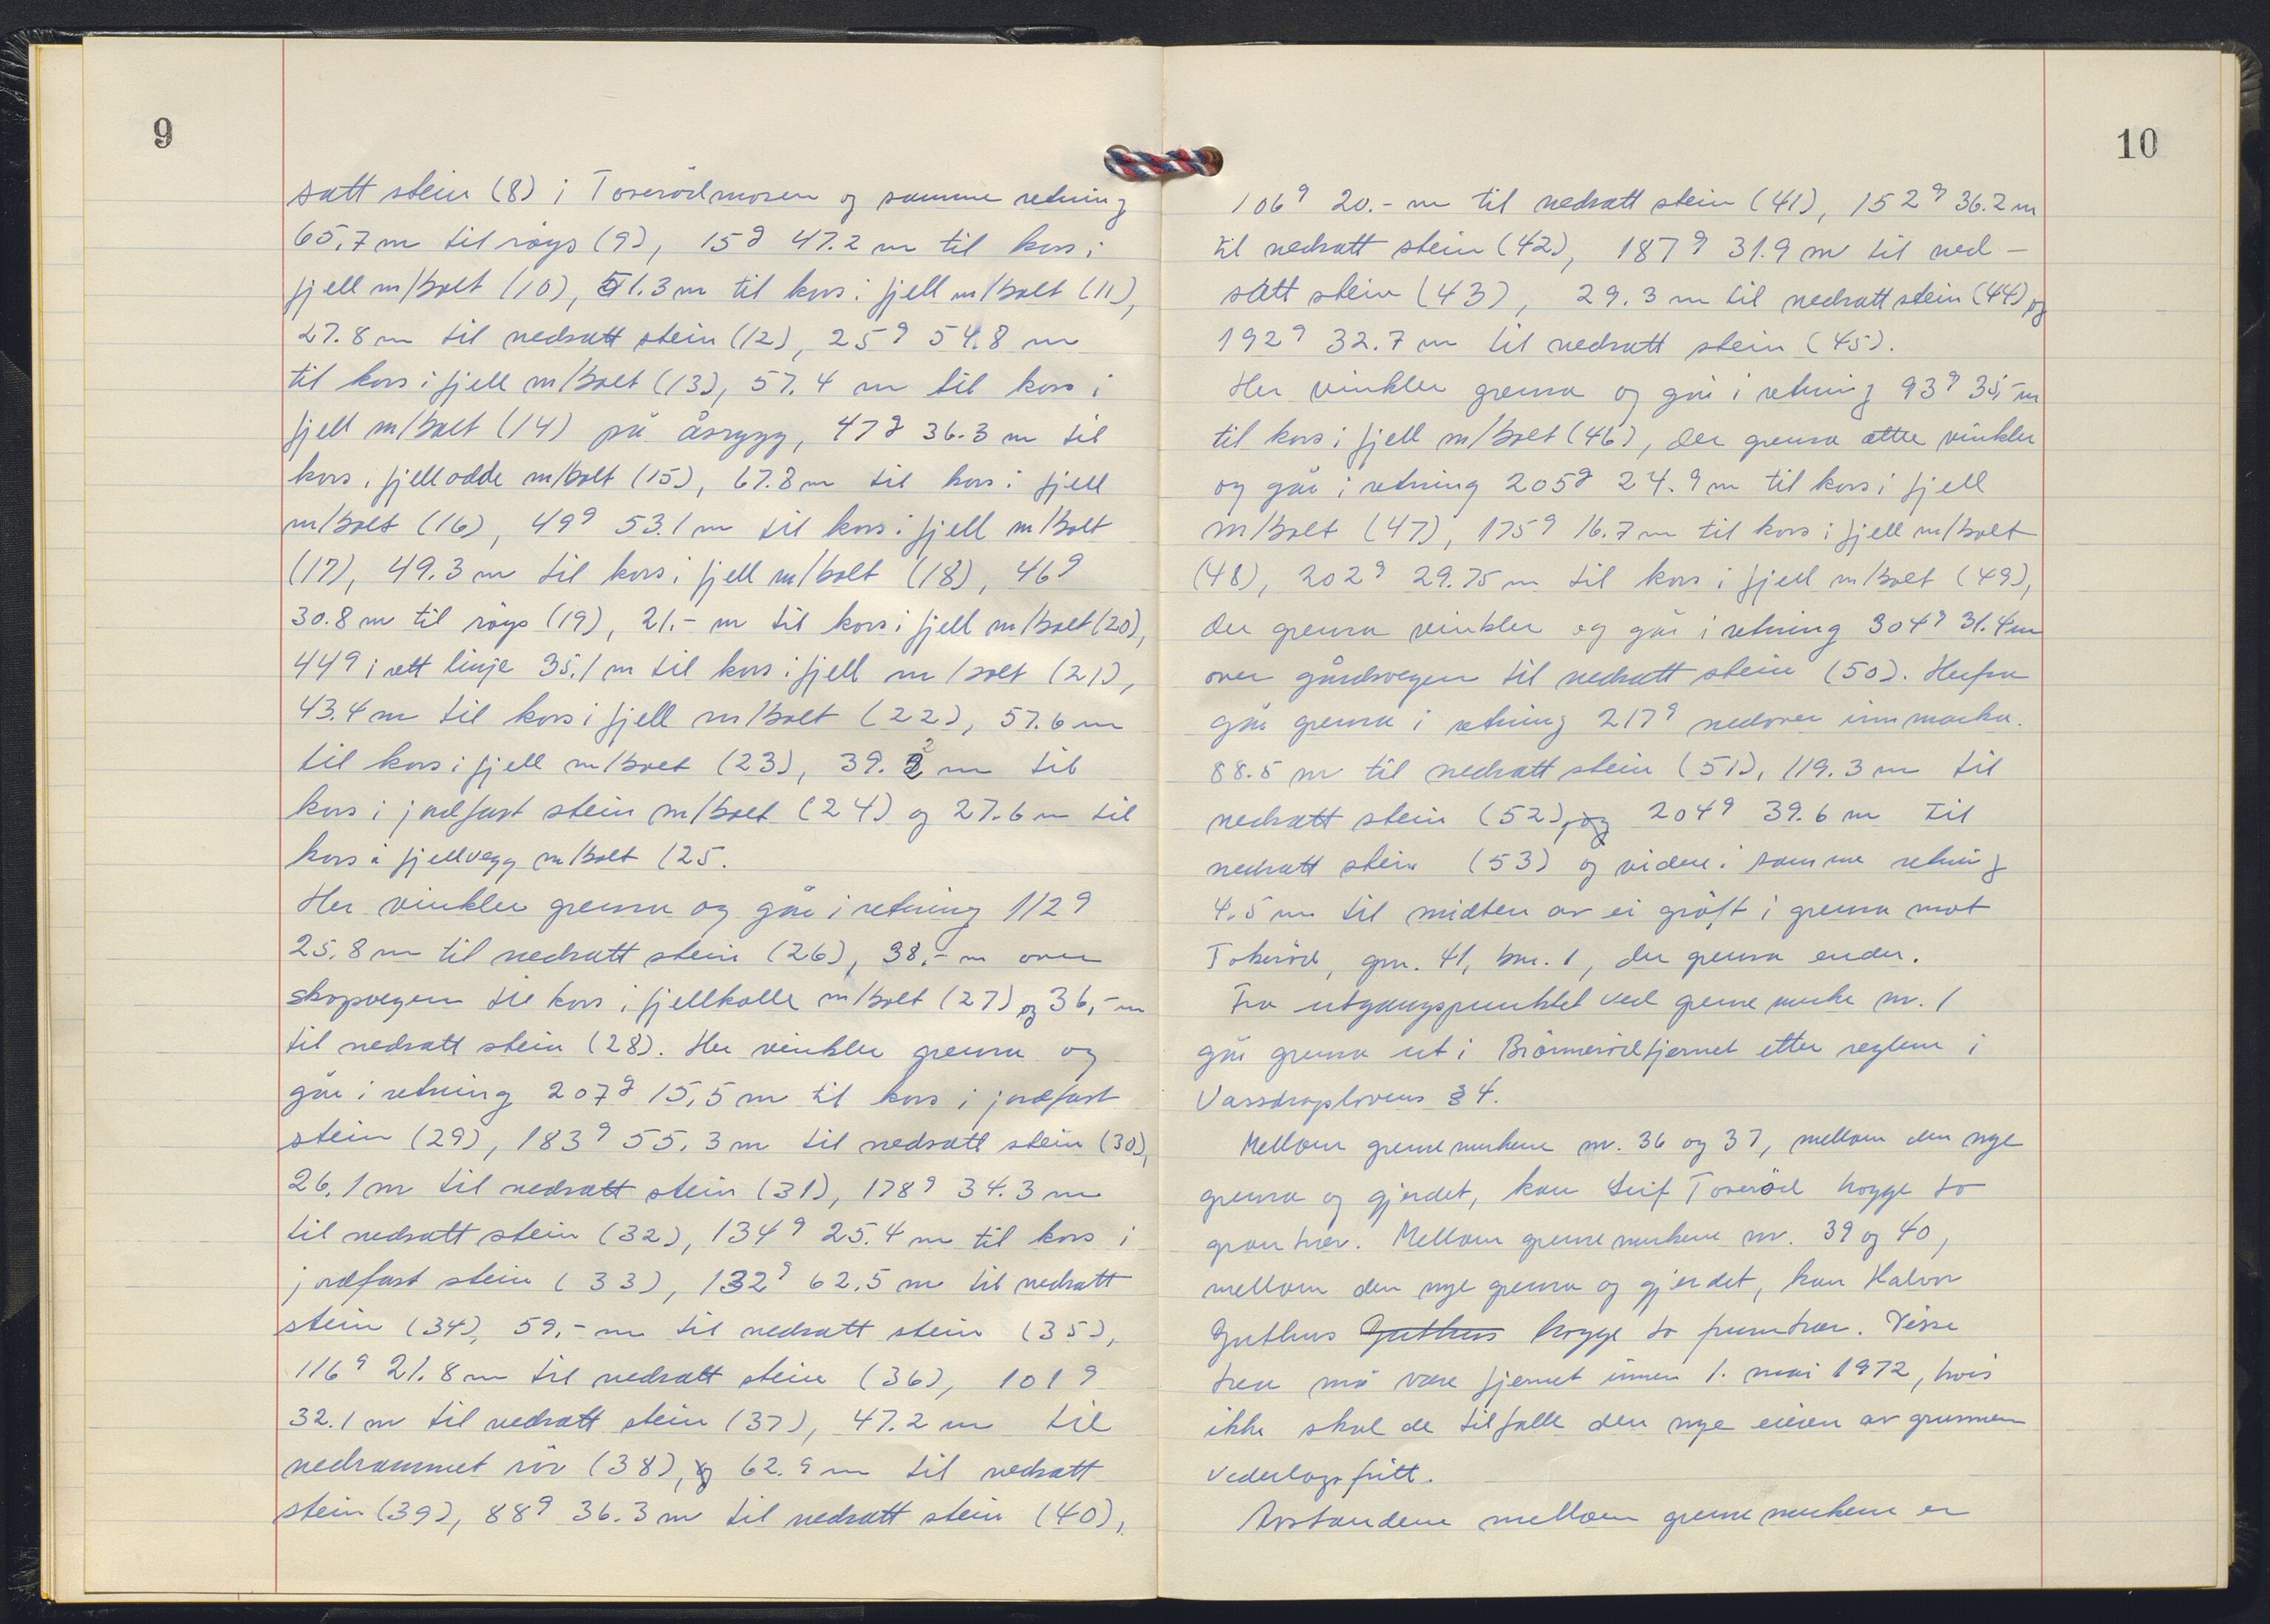 9
satt stein (8) i Toverödmosen og samme retning
65,7 m til röys (9), 15g 47.2 m til kors i
fjell m/bolt (10), 51.3 m til kors i fjell m/bolt (11),
27.8 m til nedsatt stein (12), 25g 54.8 m
til kors i fjell m/bolt (13), 57.4 m til kors i
fjell m/bolt (14) på åsrygg, 47g 36.3 m til
kors i fjellodde m/bolt (15), 67.8 m til kors i fjell
m/bolt (16), 49g 53.1 m til kors i fjell m/bolt
(17), 49.3 m til kors i fjell m/bolt (18), 46g
30.8 m til röys (19), 21.- m til kors i fjell m/bolt (20),
44g i rett linje 35.1 m til kors i fjell m/bolt (21),
43.4 m til kors i fjell m/bolt (22), 57.6 m
til kors i fjell m/bolt (23), 39.2 m til
kors i jordfast stein m/bolt (24) og 27.6 m til
kors i fjellvegg m/bolt (25.
Her vinkler grensa og går i retning 112g
25.8 m til nedsatt stein (26), 38.- m over
skogsvegen til kors i fjellkolle m/bolt (27) og 36,- m
til nedsatt stein (28). Her vinkler grensa og
går i retning 207g 15,5 m til kors i jordfast
stein (29), 183g 55.3 m til nedsatt stein (30),
26.1 m til nedsatt stein (31), 178g 34.3 m
til nedsatt stein (32), 134g 25.4 m til kors i
jordfast stein (33), 132g 62.5 m til nedsatt
stein (34), 59.- m til nedsatt stein (35),
116g 21.8 m til nedsatt stein (36), 101g
32.1 m til nedsatt stein (37), 47.2 m til
nedrammet rör (38), og 62.9 m til nedsatt
stein (39), 88g 36.3 m til nedsatt stein (40),
10
106g 20.- m til nedsatt stein (41), 152g 36.2 m
til nedsatt stein (42), 187g 31.9 m til ned-
satt stein (43), 29.3 m til nedsatt stein (44) og
192g 32.7 m til nedsatt stein (45).
Her vinkler grensa og går i retning 93g 35,- m
til kors i fjell m/bolt (46), der grensa atter vinkler
og går i retning 205g 24.9 m til kors i fjell
m/bolt (47), 175g 16.7 m til kors i fjell m/bolt
(48), 202g 29.75 m til kors i fjell m/bolt (49),
der grensa vinkler og går i retning 304g 31.4 m
over gårdsvegen til nedsatt stein (50). Herfra
går grensa i retning 217g nedover innmarka.
88.5 m til nedsatt stein (51), 119.3 m til
nedsatt stein (52), og 204g 39.6 m til
nedsatt stein (53) og videre i samme retning
4.5 m til midten av ei gröft i grensa mot
Tokeröd, gnr. 41, bnr. 1, der grensa ender.
Fra utgangspunktet ved grensemerke nr. 1
går grensa ut i Brönnerödtjernet etter reglene i
Vassdragslovens § 4.
Mellom grensemerkene nr. 36 og 37, mellom den nye
grensa og gjerdet, kan Leif Toveröd hogge to
grantrær. Mellom grensemerkene nr. 39 og 40,
mellom den nye grensa og gjerdet, kan Halvor
Guthus Guthus hogge to furutrær. Disse
trea må være fjernet innen 1. mai 1972, hvis
ikke skal de tilfalle den nye eieren av grunnen
vederlagsfritt.
Avstandene mellom grensemerkene er